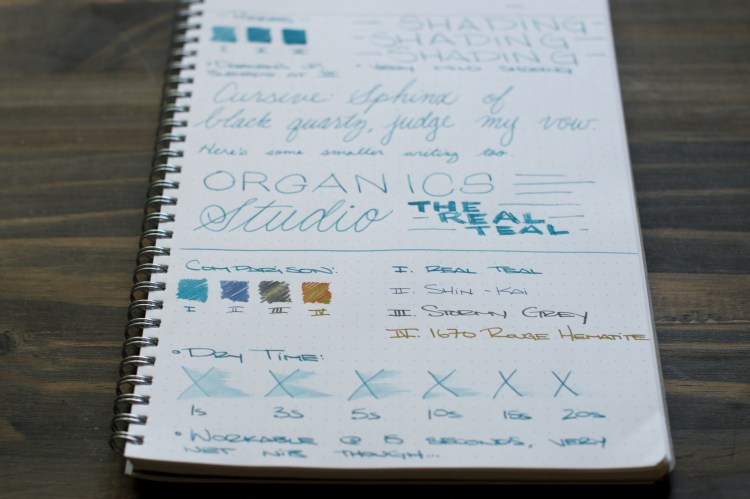 I II III
SHADING
SHADING
SHADING
• VERY MILD SHADING
Cursive: Sphinx of
black quartz, judge my vow.
Here's some smaller writing too.
ORGANICS
Studio
THE
REAL
TEAL
COMPARISON:
I II III IV
I. REAL TEAL
II. SHIN-KAI
III. STORMY GREY
IV. 1670 ROUGE HEMATITE
• DRY TIME:
1s 3s 5s 10s 15s 20s
• WORKABLE @ 5 SECONDS, VERY
WET NIB THOUGH...